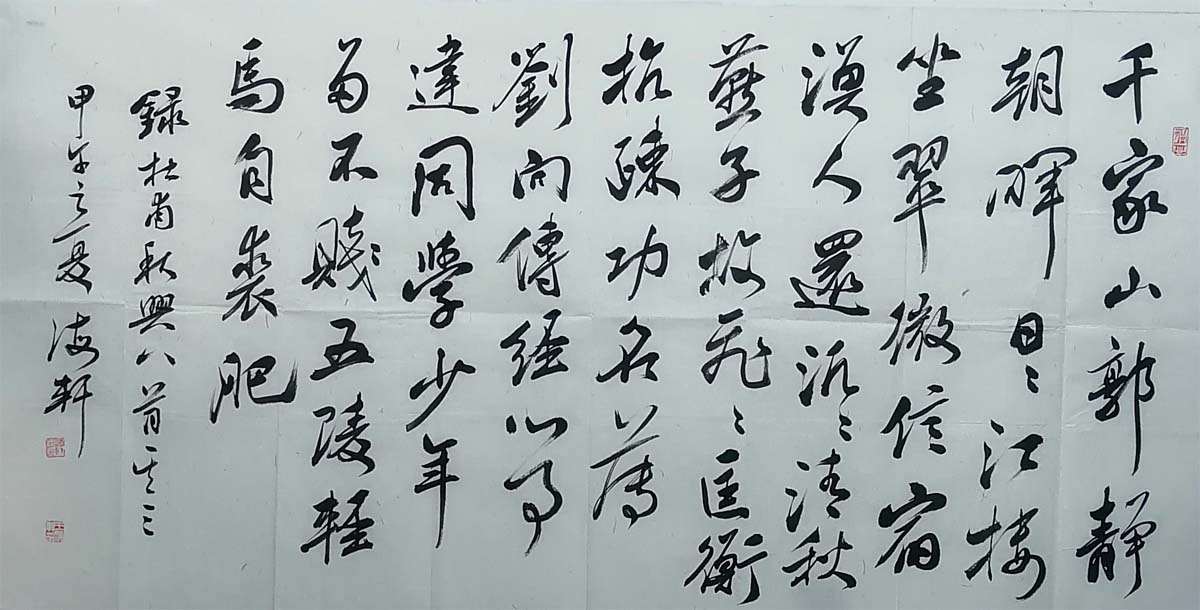 千家山郭靜
朝暉日々江樓
坐翠微信宿
漁人還汎々清秋
燕子故飛々匡衡
抗疎功名薄
劉向傳經心事
達同學少年
多不賤五陵輕
馬自裘肥
録杜甫秋興八首其三
甲午之夏 海軒